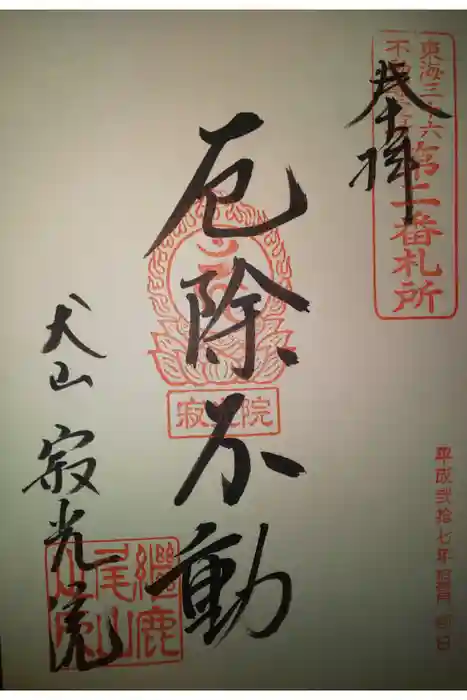 東海三十六
不動尊霊場
第二番札所
奉拝
厄除不動
寂光院
平成弐拾七年 月 日
犬山 寂光院
継鹿
尾山